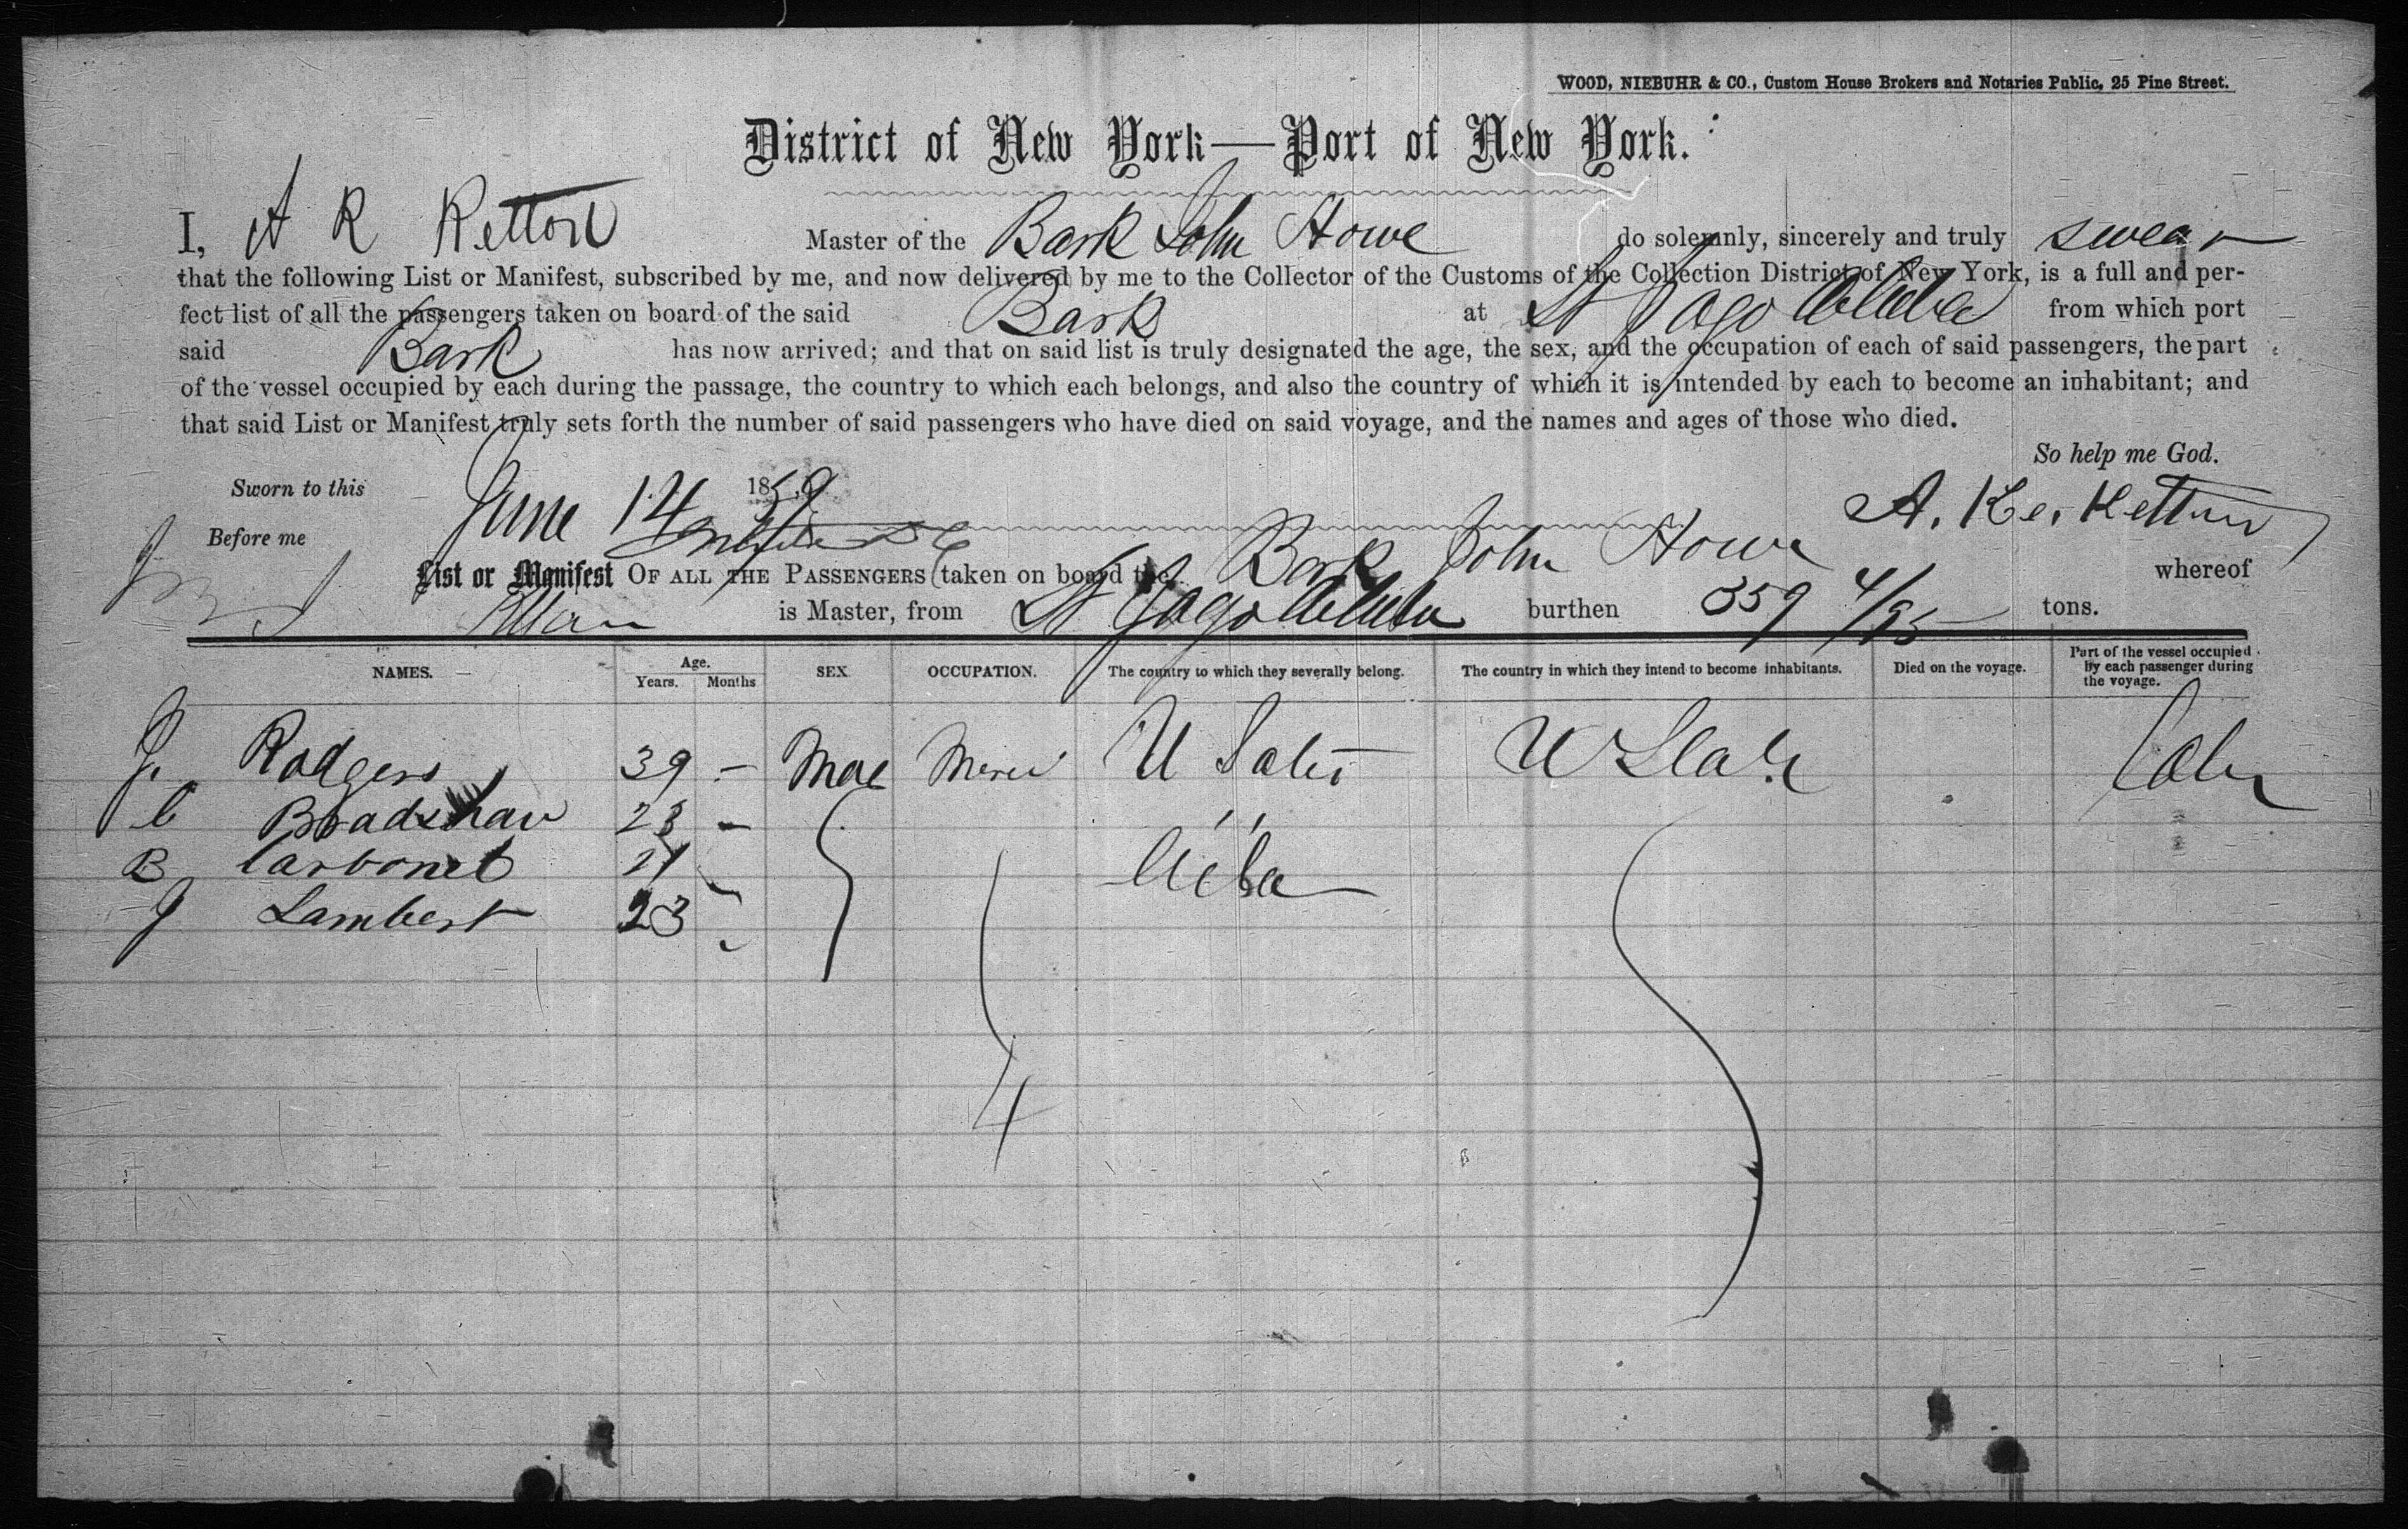 WOOD, NIEBUHR & CO., Custom House Brokers and Notaries Public, 25 Pine Street.
District of New York—Port of New York.
I, A R Kettou Master of the Bark John Howe do solemnly, sincerely and truly swear
that the following List or Manifest, subscribed by me, and now delivered by me to the Collector of the Customs of the Collection District of New York, is a full and per-
fect list of all the passengers taken on board of the said Bark at St Jago de Cuba from which port
said Bark has now arrived; and that on said list is truly designated the age, the sex, and the occupation of each of said passengers, the part
of the vessel occupied by each during the passage, the country to which each belongs, and also the country of which it is intended by each to become an inhabitant; and
that said List or Manifest truly sets forth the number of said passengers who have died on said voyage, and the names and ages of those who died.
So help me God.
Sworn to this June 14 1859
Before me
List or Manifest OF ALL THE PASSENGERS taken on board the Bark John Howe whereof
is Master, from St Jago de Cuba burthen 359 4/95 tons.
NAMES. Age. Years. Months SEX OCCUPATION. The country to which they severally belong. The country in which they intend to become inhabitants. Died on the voyage. Part of the vessel occupied by each passenger during the voyage.
J. Rodgers 39 – Mal U States U States
C Bradshaw 23 – ,,
B Carbonel Cuba
J Lambert 23
4